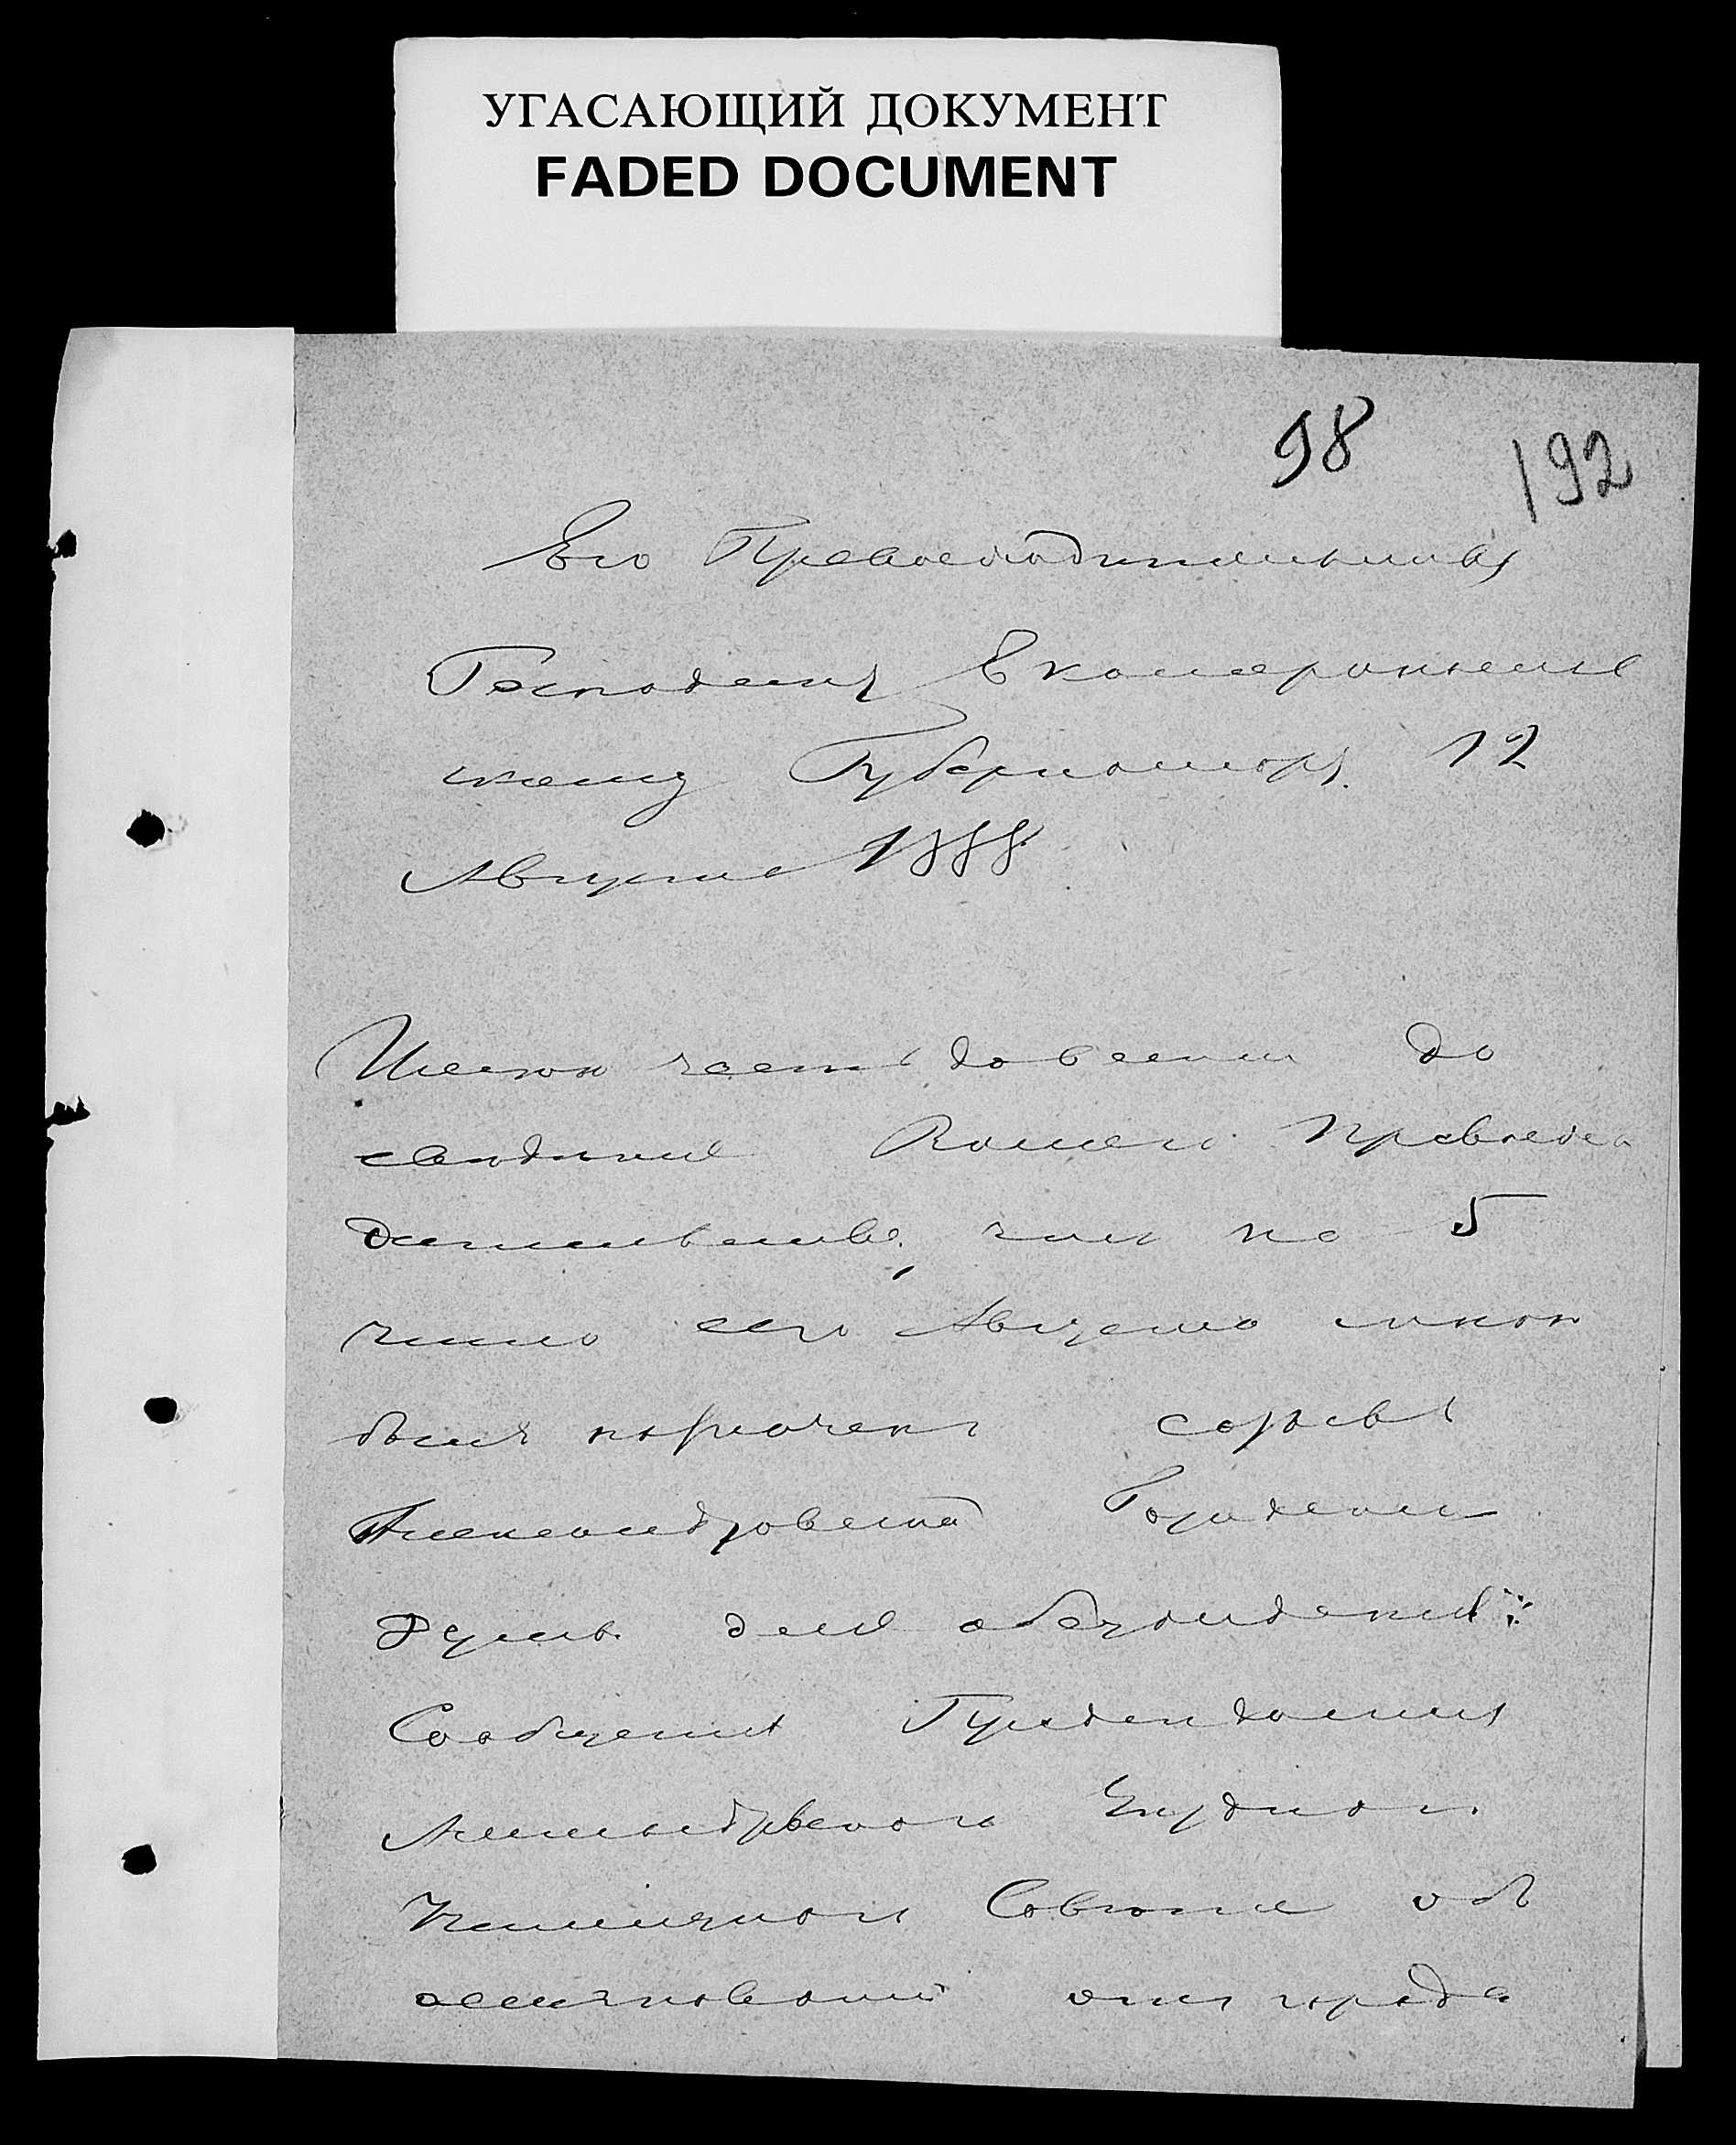 УГАСАЮЩИЙ ДОКУМЕНТ
FADED DOCUMENT
98
192
Его Превосходительству
Господину Екатеринослав
скому Губернатору. 12
Августа 1888
Имею честь довести до
сведения Вашего Превосхо
дительства, что на 5
число сего Августа мною
былъ назначенъ созывъ
Александровской Городской
Думы для обсуждения:
Сообщения
Александровского Уезднаго
Училищнаго Совета об
ассигновании отъ города